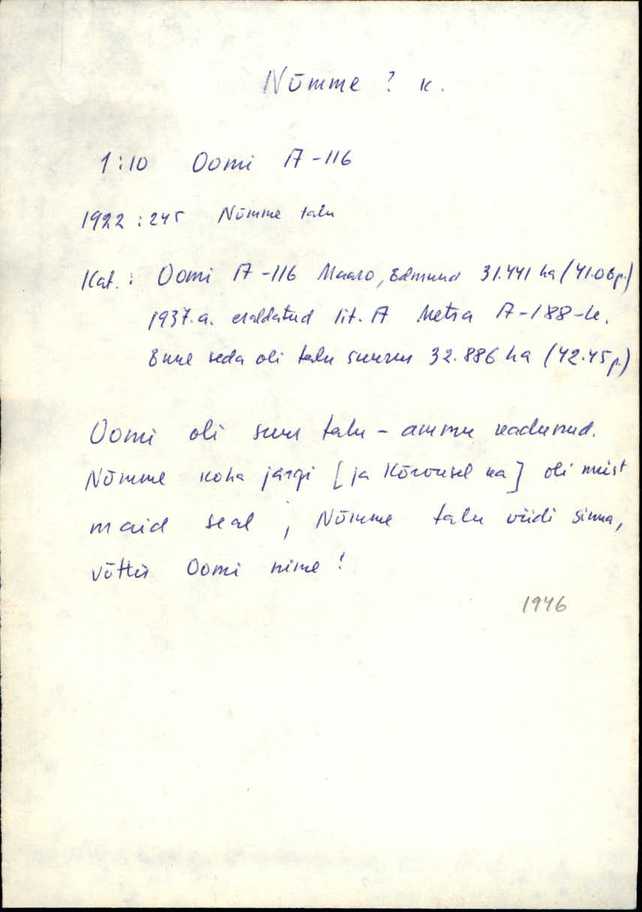 Nõmme ? k.
1:10 Oomi A-116
1922:245 Nõmme talu
Kat.: Oomi A-116 Maaro, Edmund 31.441 ha (41.06p.)
1937.a. eraldatud lit. A Metsa A-188-le.
Enne seda oli talu suurus 32.886 ha (42.45p)
Oomi oli suur talu - ammu kadunud.
Nõmme koha järgi [ja Kõrvusel ka] oli meist
maid seal; Nõmme talu viidi sinna,
võttis Oomi nime!
1946